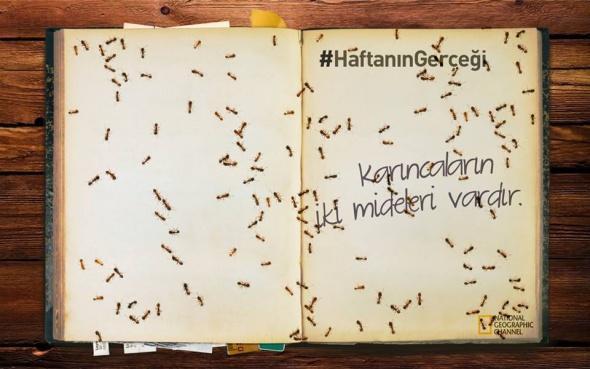 #HaftanınGerçeği
Karıncaların
iki mideleri vardır.
NATIONAL
GEOGRAPHIC
CHANNEL